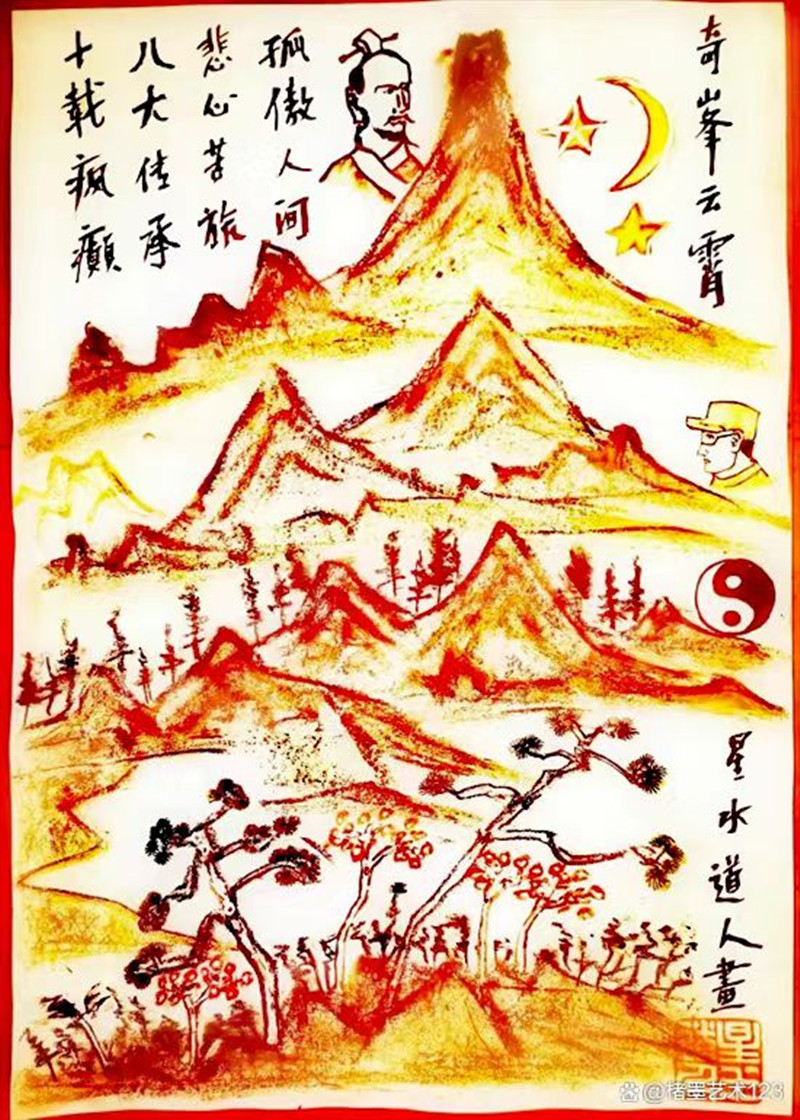 奇峯云霄
孤傲人间
悲心苦旅
八大传承
十载疯癫
星水道人畫
@楮墨艺术123